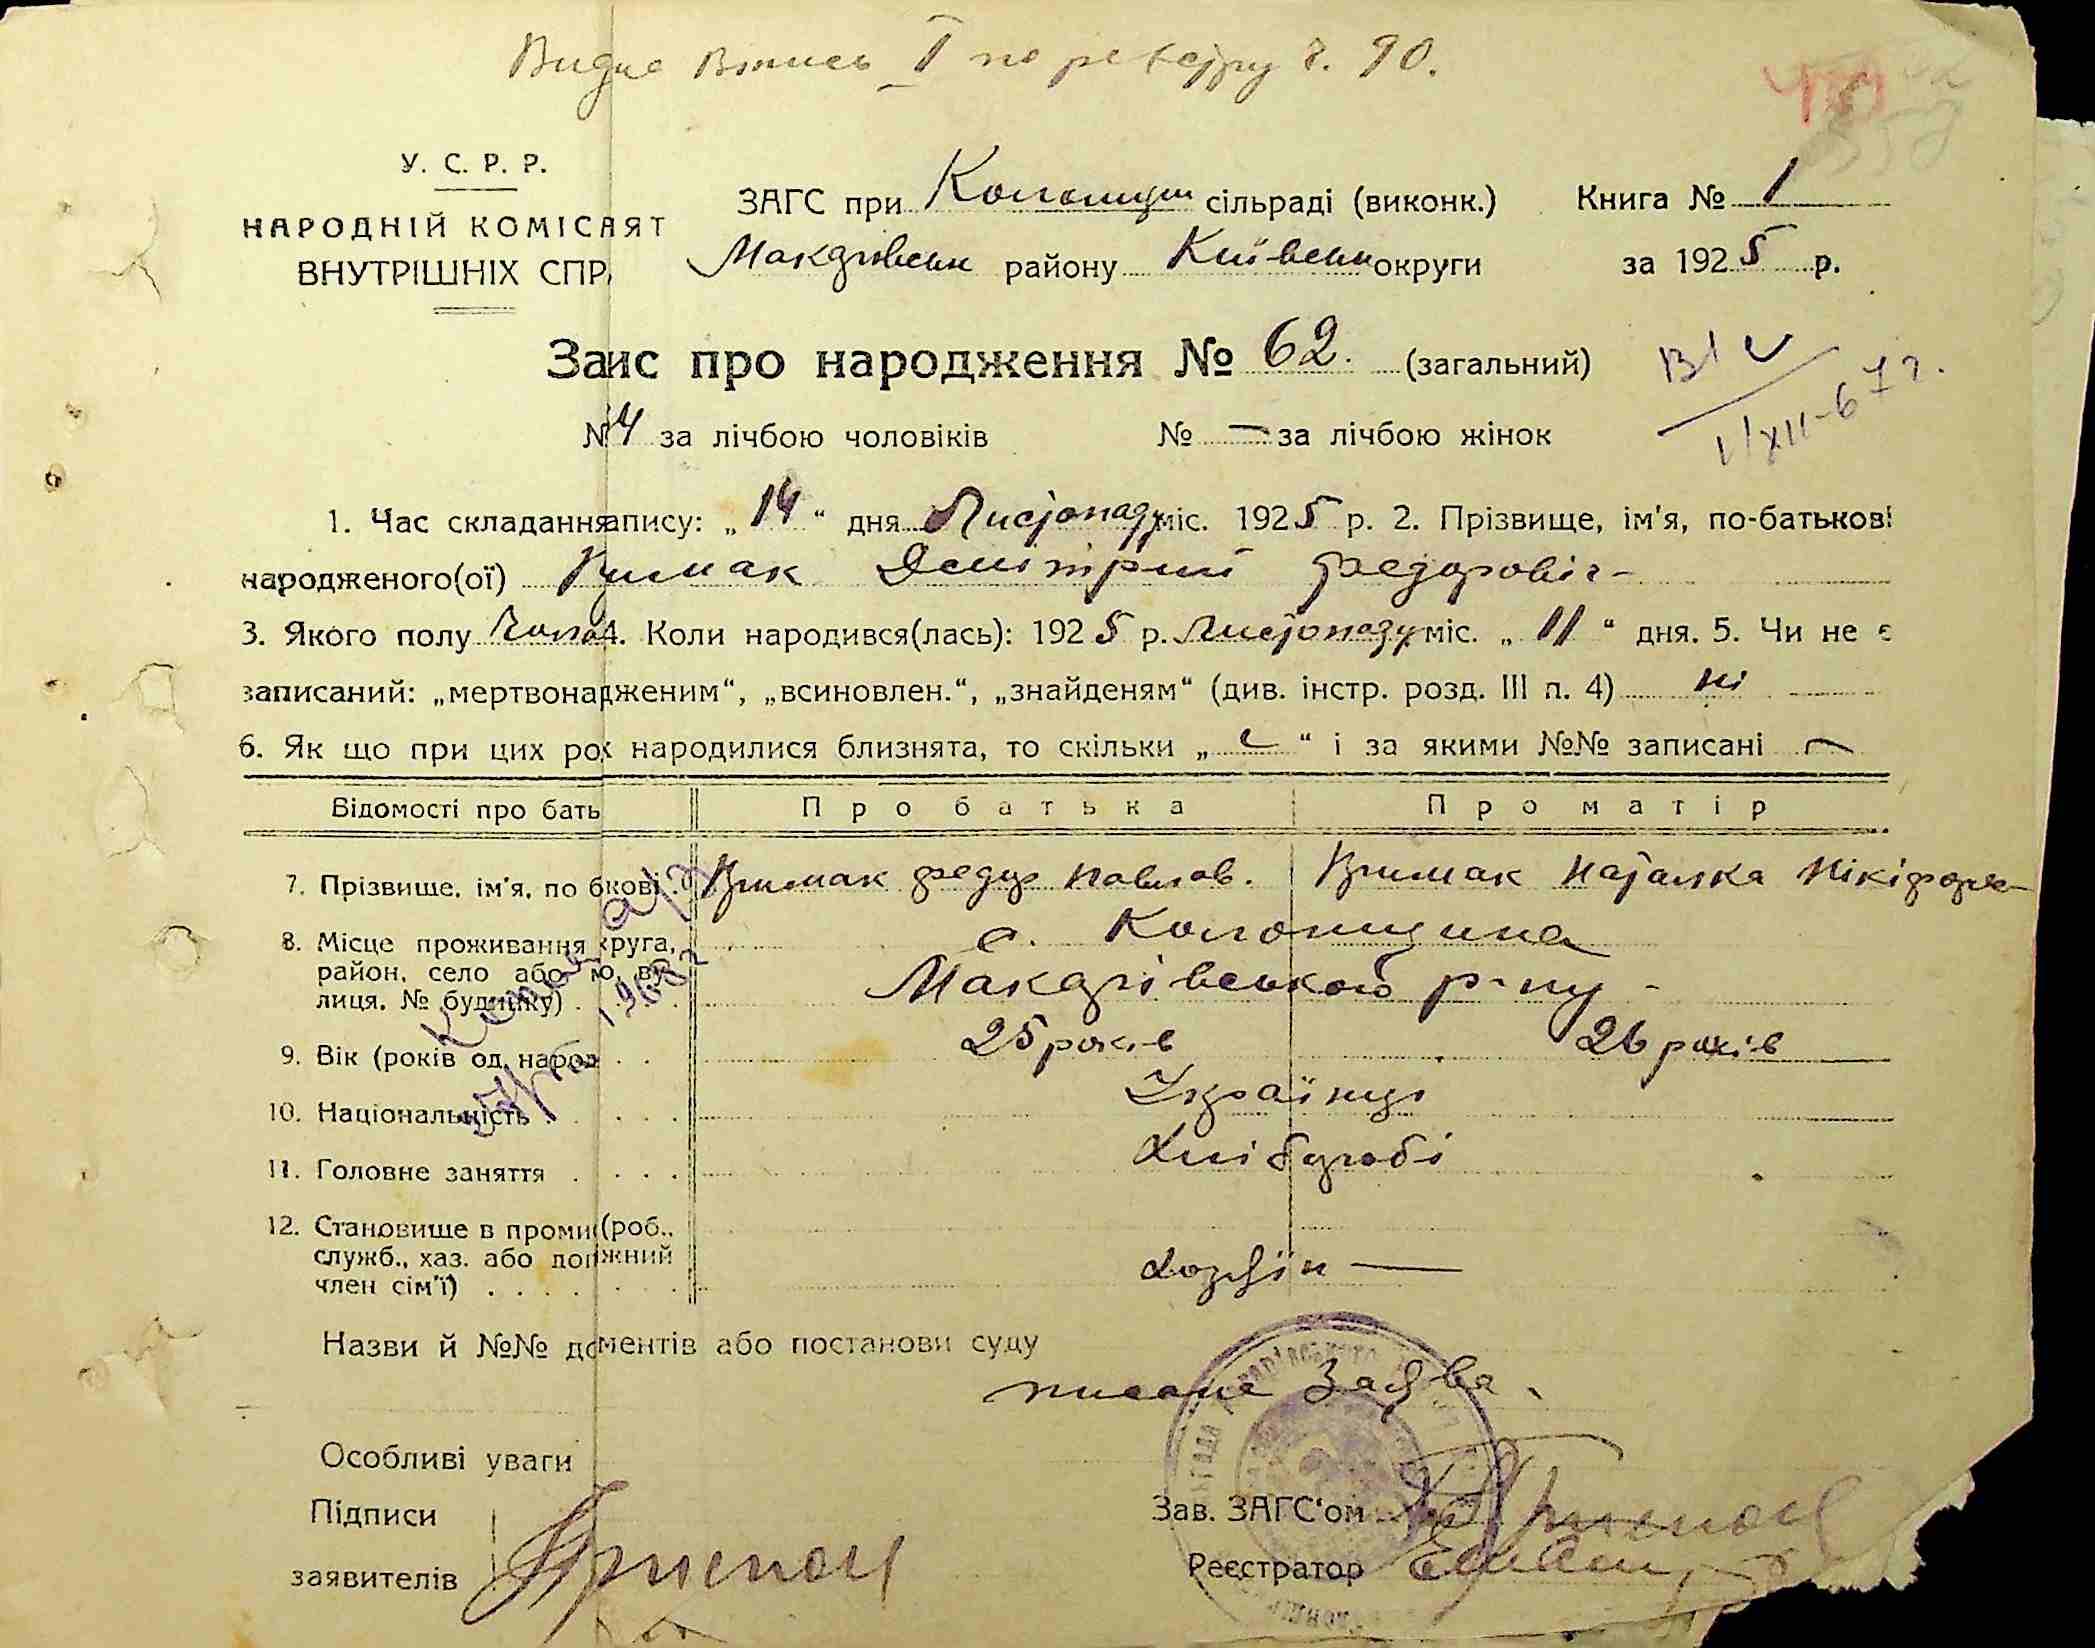 Видно Випись І по реєстру ч. 90.
У. С. Р. Р.
НАРОДНІЙ КОМІСАЯТ
ВНУТРІШНІХ СПР
ЗАГС при Колонщин сільраді (виконк.) Книга № 1
Макарівськ району Київськ округи за 1925 р.
Заис про народження № 62. (загальний)
№ 4 за лічбою чоловіків № — за лічбою жінок
1/XII-67 г.
1. Час складання апису: „14“ дня Листопаду міс. 1925 р. 2. Прізвище, ім'я, по-батькові
народженого(ої) Примак Дмітрий Федорович
3. Якого полу Чолов 4. Коли народився(лась): 1925 р. Листопаду міс. „11“ дня. 5. Чи не є
записаний: „мертвонадженим“, „всиновлен.“, „знайденям“ (див. інстр. розд. III п. 4) ні
6. Як що при цих рох народилися близнята, то скільки „ “ і за якими №№ записані —
Відомості про бать Про батька Про матір
7. Прізвище, ім'я, по бкові Примак Федор Павлов. Примак Наталка Нікіфоров
8. Місце проживання круга, с. Колонщина
район, село або ву
лиця, № будинку) Макарівського р-ну -
9. Вік (років од народ 25 років 26 років
10. Національність Українці
11. Головне заняття Хлібороби
12. Становище в проми (роб.,
служб., хаз. або попжний
член сім'ї) Хозяїн —
Назви й №№ доментів або постанови суду
писана Заява.
Особливі уваги
Підписи
заявителів
Зав. ЗАГС'ом
Реєстратор